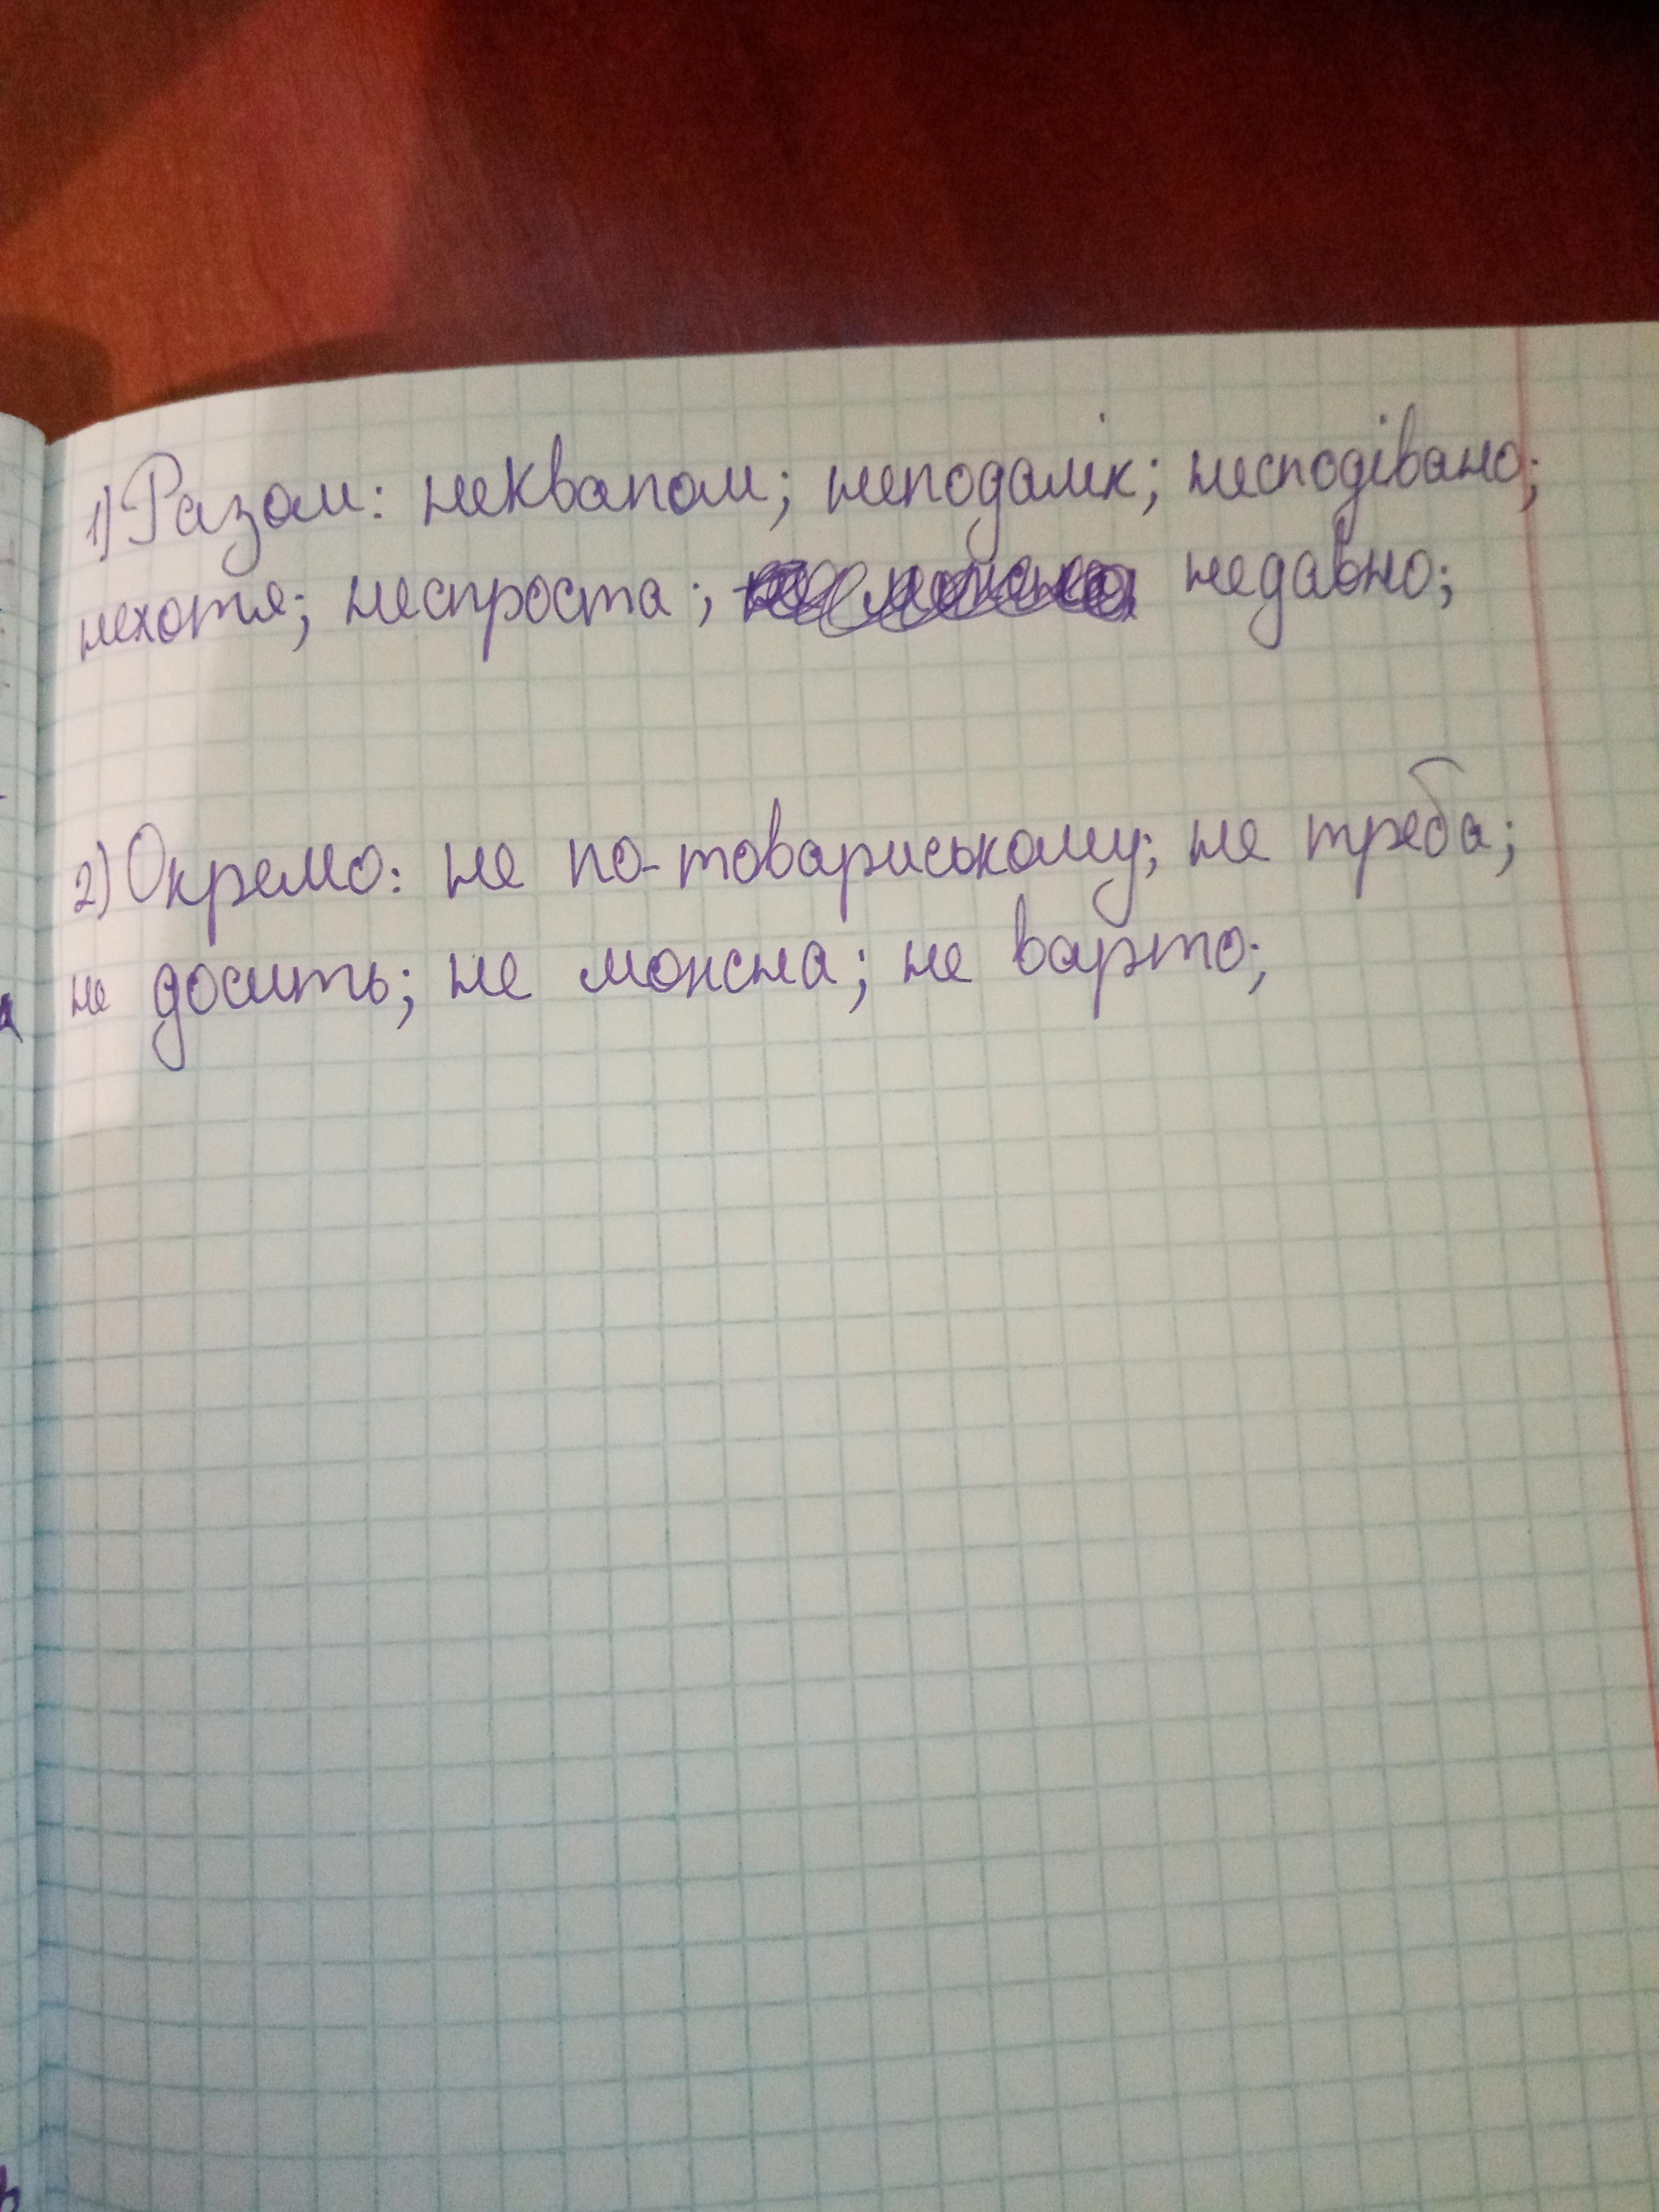 1) Разом: неквапом; неподалік; несподівано;
нехотя; неспроста; недавно;
2) Окремо: не по-товариському; не треба;
не досить; не можна; не варто;